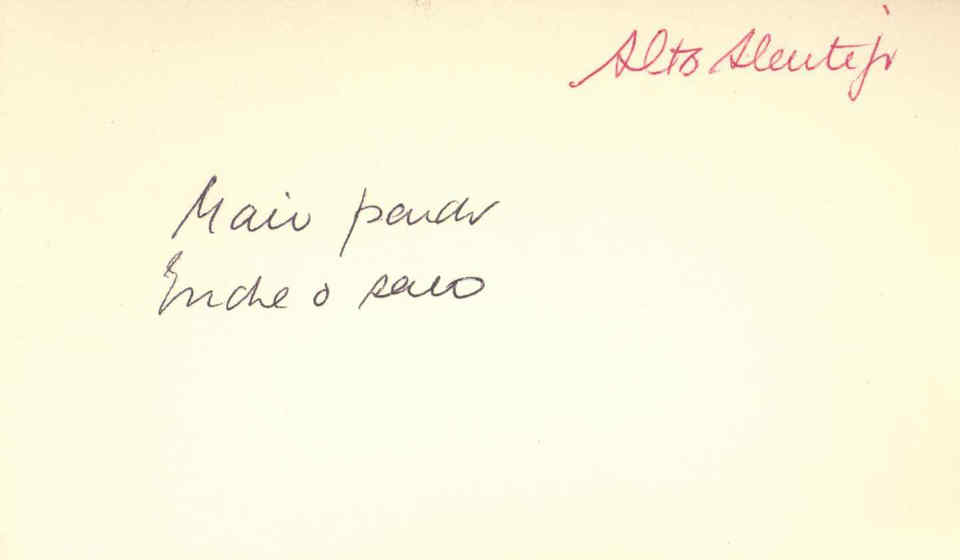 Alto Alentejo
Maio pardo
Enche o saco